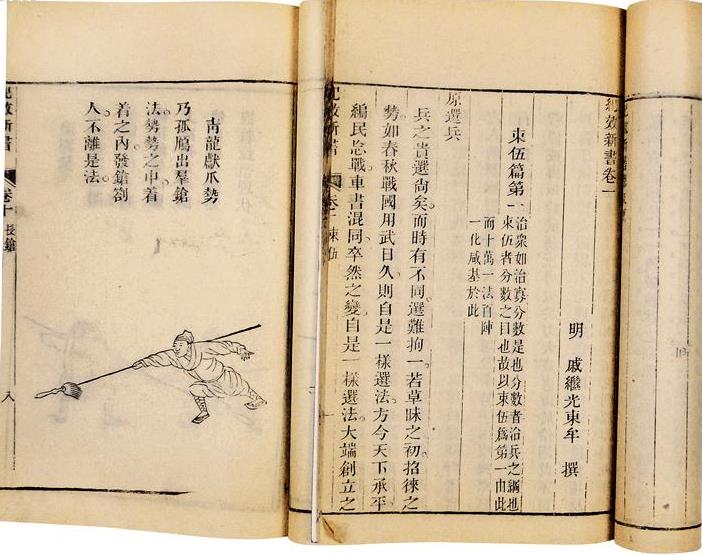 紀效新書卷一
明 戚繼光東牟 撰
束伍篇第一
治衆如治寡分數是也分數者治兵之綱也
束伍者分數之目也故以束伍爲第一由此
而十萬一法百陣
一化咸基於此
原選兵
兵之貴選尙矣而時有不同選難拘一若草昧之初招徠之
勢如春秋戰國用武日久則自是一樣選法方今天下承平
編民忘戰車書混同卒然之變自是一樣選法大端創立之
紀效新書 卷一 束伍
靑龍獻爪勢
乃孤鴈出羣鎗
法勢勢之中着
着之內發鎗劄
人不離是法
紀效新書 卷十 長鎗
八